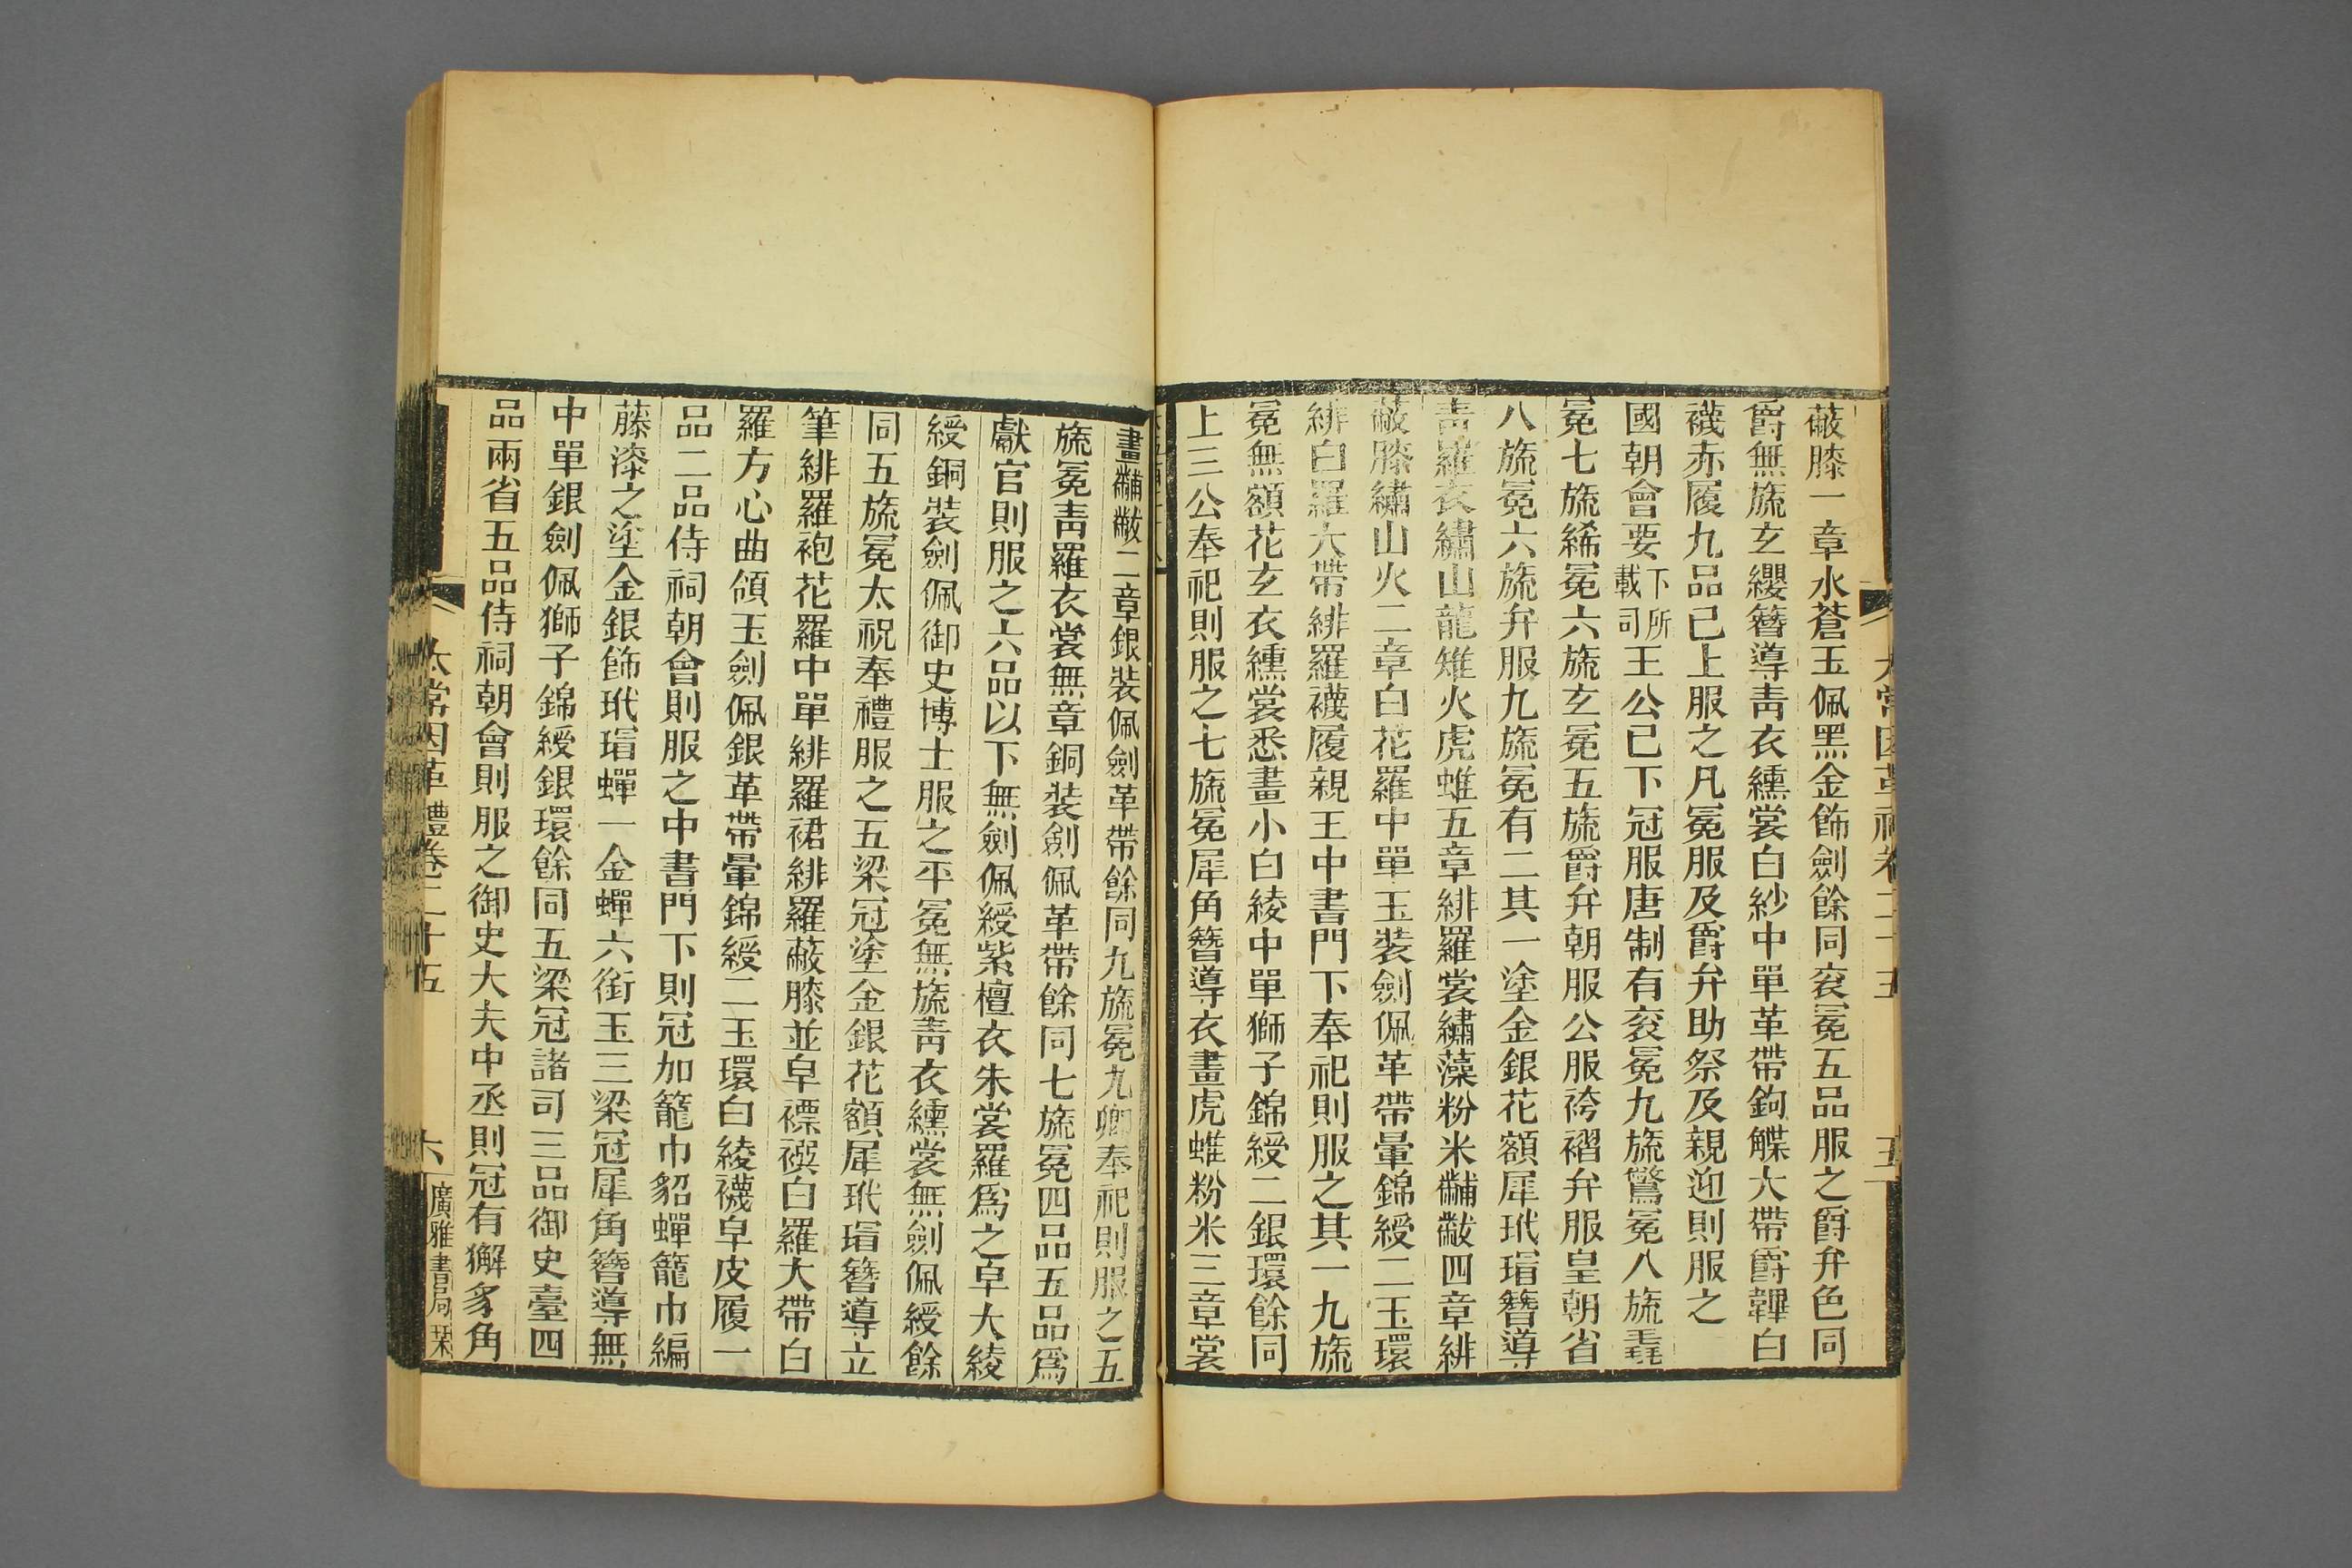 蔽膝一章水蒼玉佩黑金飾劍餘同衮冕五品服之爵弁色同
爵無旒玄纓簪導靑衣纁裳白紗中單革帶鉤䚢大帶爵韠白
襪赤履九品已上服之凡冕服及爵弁助祭及親迎則服之
國朝會要下所載司王公已下冠服唐制有衮冕九旒鷩冕八旒毳
冕七旒絺冕六旒玄冕五旒爵弁朝服公服袴褶弁服皇朝省
八旒冕六旒弁服九旒冕有二其一塗金銀花額犀玳瑁簪導
靑羅衣繡山龍雉火虎蜼五章緋羅裳繡藻粉米黼黻四章緋
蔽膝繡山火二章白花羅中單玉裝劍佩革帶暈錦綬二玉環
緋白羅大帶緋羅襪履親王中書門下奉祀則服之其一九旒
冕無額花玄衣纁裳悉畫小白綾中單獅子錦綬二銀環餘同
上三公奉祀則服之七旒冕犀角簪導衣畫虎蜼粉米三章裳
畫黼黻二章銀裝佩劍革帶餘同九旒冕九卿奉祀則服之五
旒冕靑羅衣裳無章銅裝劍佩革帶餘同七旒冕四品五品爲
獻官則服之六品以下無劍佩綬紫檀衣朱裳羅爲之皁大綾
綬銅裝劍佩御史博士服之平冕無旒靑衣纁裳無劍佩綬餘
同五旒冕太祝奉禮服之五梁冠塗金銀花額犀玳瑁簪導立
筆緋羅袍花羅中單緋羅裙緋羅蔽膝並皁褾襈白羅大帶白
羅方心曲領玉劍佩銀革帶暈錦綬二玉環白綾襪皁皮履一
品二品侍祠朝會則服之中書門下則冠加籠巾貂蟬籠巾編
藤漆之塗金銀飾玳瑁蟬一金蟬六銜玉三梁冠犀角簪導無
中單銀劍佩獅子錦綬銀環餘同五梁冠諸司三品御史臺四
品兩省五品侍祠朝會則服之御史大夫中丞則冠有獬豸角
太常因革禮卷二十五
六
廣雅書局栞